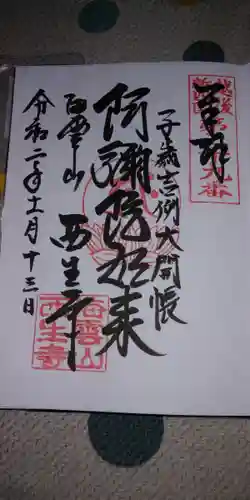 奉拝
子歳吉例大開帳
阿彌陀如来
白雲山 西生寺
令和二年十一月十三日
白雲山
西生寺